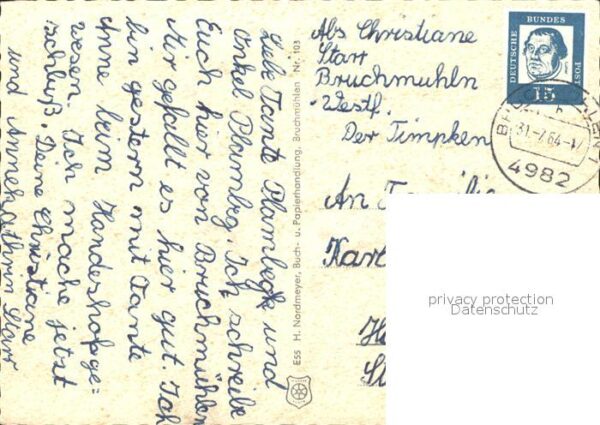 Liebe Tante Plambeck und
Onkel Plambeg. Ich schreibe
Euch hier von Bruchmühlen
Mir gefällt es hier gut. Ich
bin gestern mit Tante
Anne beim Handeshofge-
wesen. Ich mache jetzt
schluß. Deine Christiane
und Annekathrin Starr
ESS H. Nordmeyer, Buch- u. Papierhandlung, Bruchmühlen Nr. 103
Abs Christiane
Starr
Bruchmuhln
Westf.
Der Timpken
An
Karl
DEUTSCHE BUNDES POST
15
31.-7.64-17
4982
privacy protection
Datenschutz